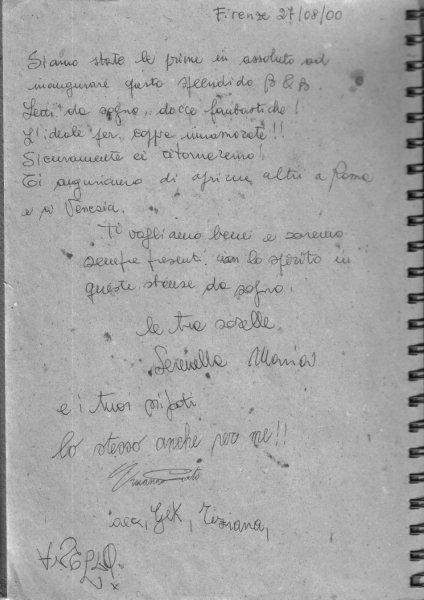 Firenze 27/08/00
Siamo state le prime in assoluto ad
inaugurare questo splendido B & B.
Letti da sogno, docce fantastiche!
L'ideale per coppie innamorate!!
Sicuramente ci ritorneremo!
Ti auguriamo di aprirne altri a Roma
e a Venezia.
Ti vogliamo bene e saremo
sempre presenti con lo spirito in
queste stanze da sogno.
le tue sorelle
Serenella Maria
e i tuoi nipoti
lo stesso anche per me!!
Tiziana,